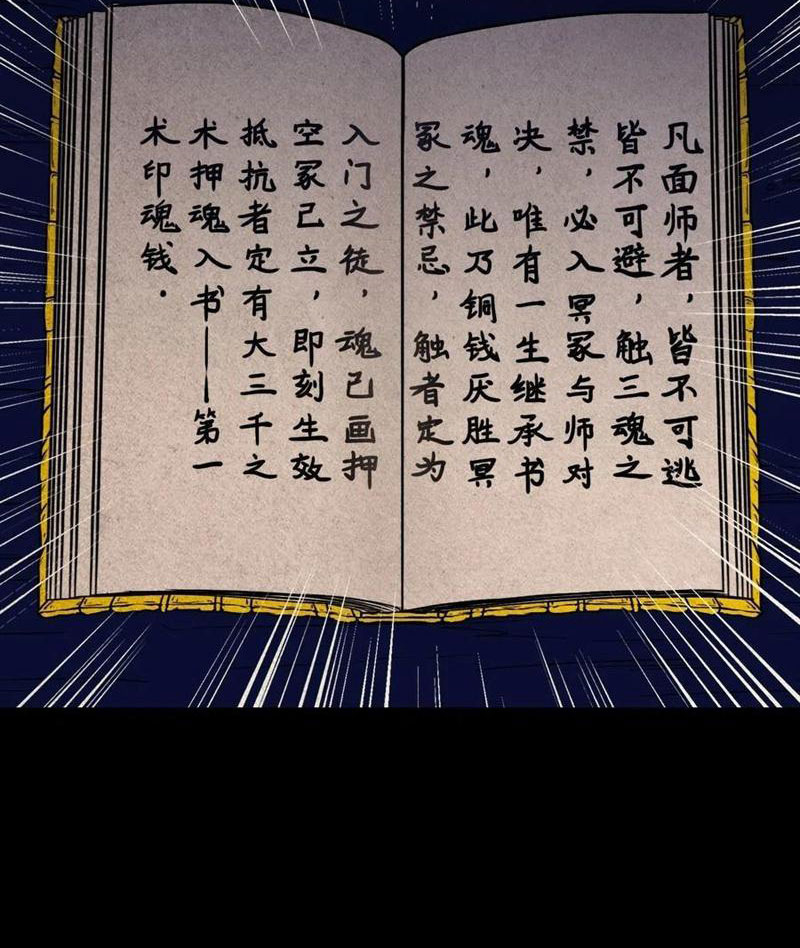 凡面师者，皆不可逃
皆不可避，触三魂之
禁，必入冥冢与师对
决，唯有一生继承书
魂，此乃铜钱厌胜冥
冢之禁忌，触者定为
入门之徒，魂已画押
空冢已立，即刻生效
抵抗者定有大三千之
术押魂入书——第一
术印魂钱．